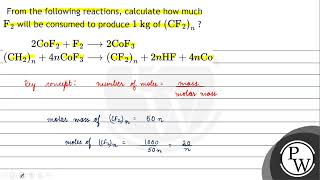 From the following reactions, calculate how much
F₂ will be consumed to produce 1 kg of (CF₂)ₙ ?
2CoF₂ + F₂ ⟶ 2CoF₃
(CH₂)ₙ + 4nCoF₃ ⟶ (CF₂)ₙ + 2nHF + 4nCo
Key concept: number of moles = mass / molar mass
molar mass of (CF₂)ₙ = 50n
moles of (CF₂)ₙ = 1000/50n = 20/n
PW